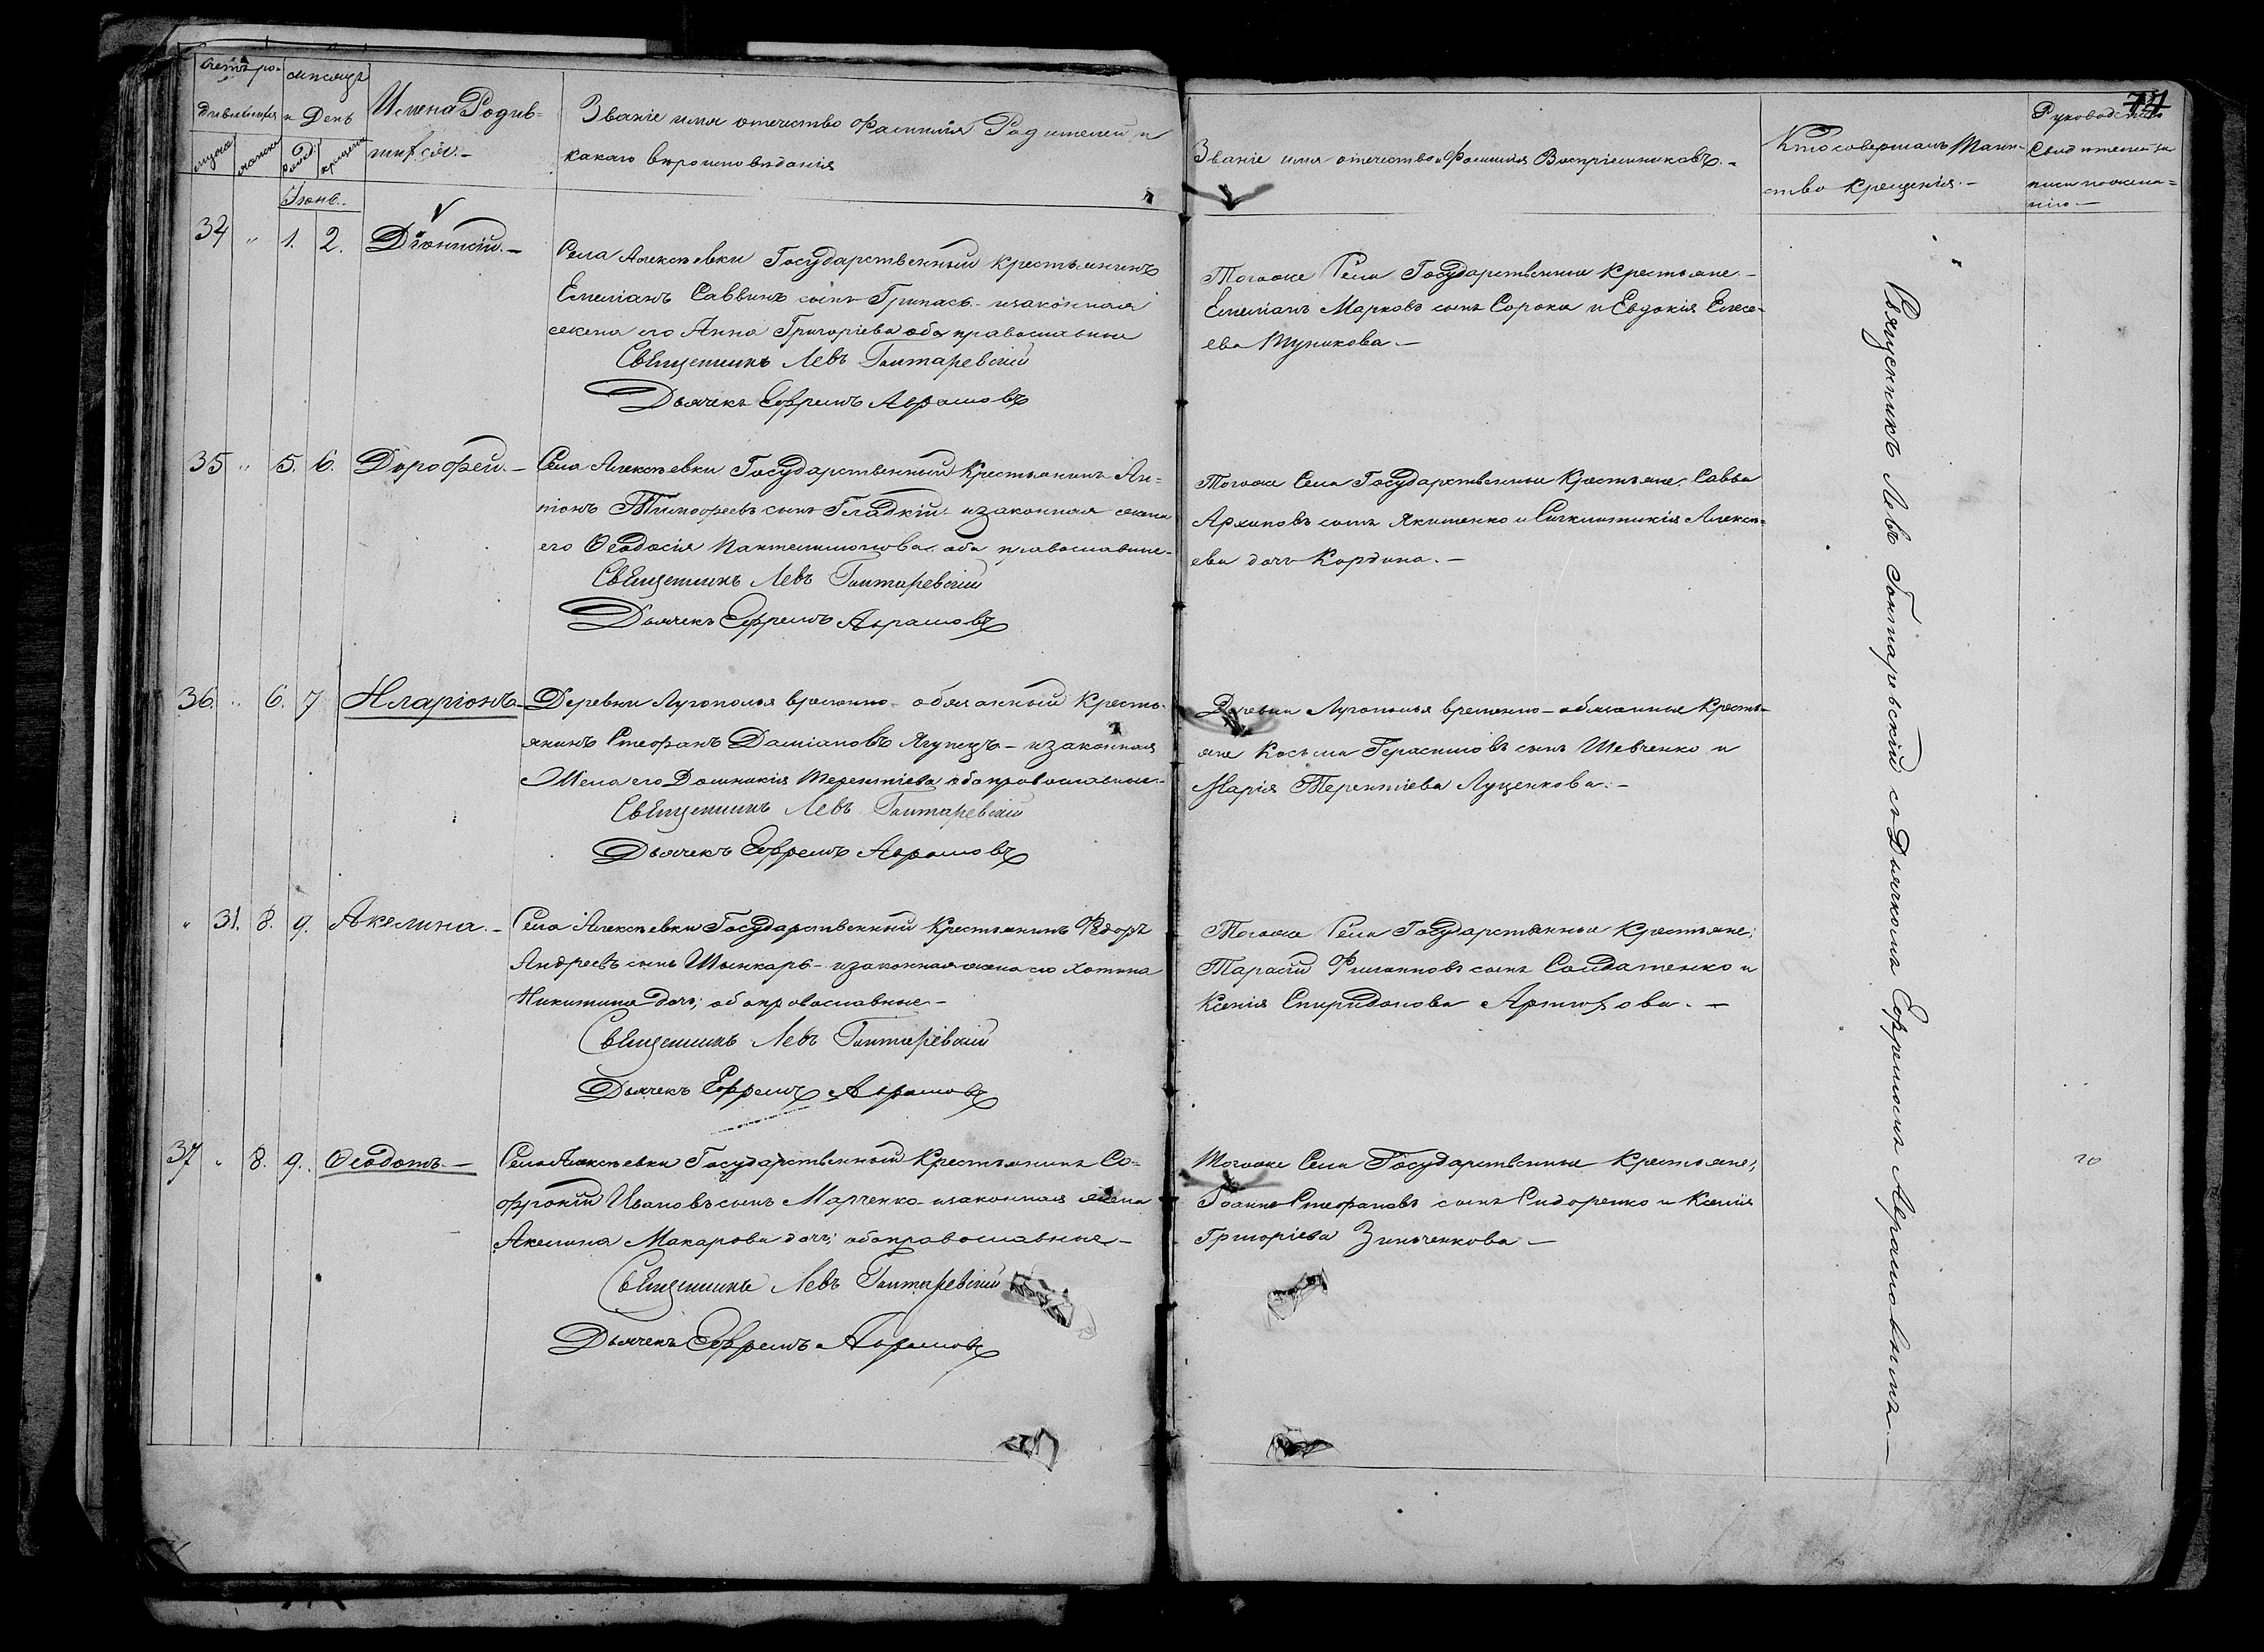 74
Счетъ ро-
дившихся
мужеска
женска
мѣсяцъ
и День
рожд:
крещенія
Имена Родив-
шихся.-
Званіе имя отечество Фамилія Родителей и
какого вѣроисповѣданія
Званіе имя отечество и Фамилія Воспріемниковъ.-
Кто совершалъ Таин-
ство Крещенія.-
Рукоприкладство
Свидѣтелей за
писи по жела=
нію.-
Іюнь.
34 " 1. 2. Діонисій.-
Села Алексѣевки Государственный Крестьянинъ
Емеліанъ Саввинъ сынъ Грипась- и законная
жена его Анна Григоріева оба православные
Священникъ Левъ Гонтаревскій
Дьячекъ Ефремъ Авраамовъ
Тогоже Села Государственные Крестьяне.-
Емеліанъ Марковъ сынъ Сорока и Евдокія Елисе-
ева Туникова.-
35 " 5. 6. Дорофей.-
Села Алексѣевки Государственный Крестьянинъ Ан=
тонъ Тимофеевъ сынъ Гладкій- и законная жена
его Ѳеодосія Пантелимонова оба православные-
Священникъ Левъ Гонтаревскій
Дьячекъ Ефремъ Авраамовъ
Тогоже Села Государственные Крестьяне; Савва
Архиповъ сынъ Якименко и Синклитикія Алексѣ=
ева дочь Кордина.-
36. " 6. 7 Иларіонъ
Деревни Лугополья временно-обязанный Кресть-
янинъ Стефанъ Даміановъ Ягупецъ- и законная
Жена его Домникія Терентіева оба православные-
Священникъ Левъ Гонтаревскій
Дьячекъ Ефремъ Авраамовъ
Деревни Лугополья временно-обязанные Кресть-
яне Косьма Герасимовъ сынъ Шевченко и
Марія Терентіева Луценкова.-
" 31. 8. 9. Акелина.-
Села Алексѣевки Государственный Крестьянинъ Ѳедоръ
Андреевъ сынъ Шынкарь- и законная жена его Хотина
Никитина дочь; оба православные-
Священникъ Левъ Гонтаревскій
Дьячекъ Ефремъ Авраамовъ
Тогоже Села Государственные Крестьяне;
Тарасій Филипповъ сынъ Солдатенко и
Ксенія Спиридонова Артюхова.-
37 " 8. 9. Ѳеодотъ.-
Села Алексѣевки Государственный Крестьянинъ Со-
фроній Ивановъ сынъ Марченко- и законная жена
Акелина Макарова дочь; оба православные-
Священникъ Левъ Гонтаревскій
Дьячекъ Ефремъ Авраамовъ
Тогоже Села Государственные Крестьяне;
Іоаннъ Стефановъ сынъ Сидоренко и Ксенія
Григоріева Зинченкова-
Священникъ Левъ Гонтаревскій съ Дьячкомъ Ефремомъ Авраамовымъ.-